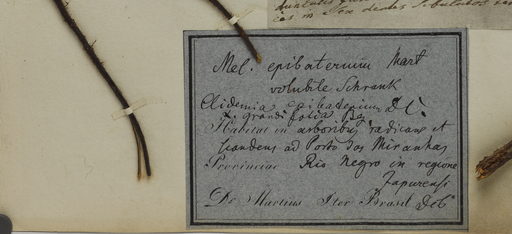 Mel. epibaterium Mart
volubile Schrank
Clidemia epibaterium D C.
β. grandifolia
Habitat in arboribus radicans et
scandens ad Porto dos Miranhas
Provinciae Rio Negro in regione
Japurensi
Dr. Martius Iter Brasil Deb